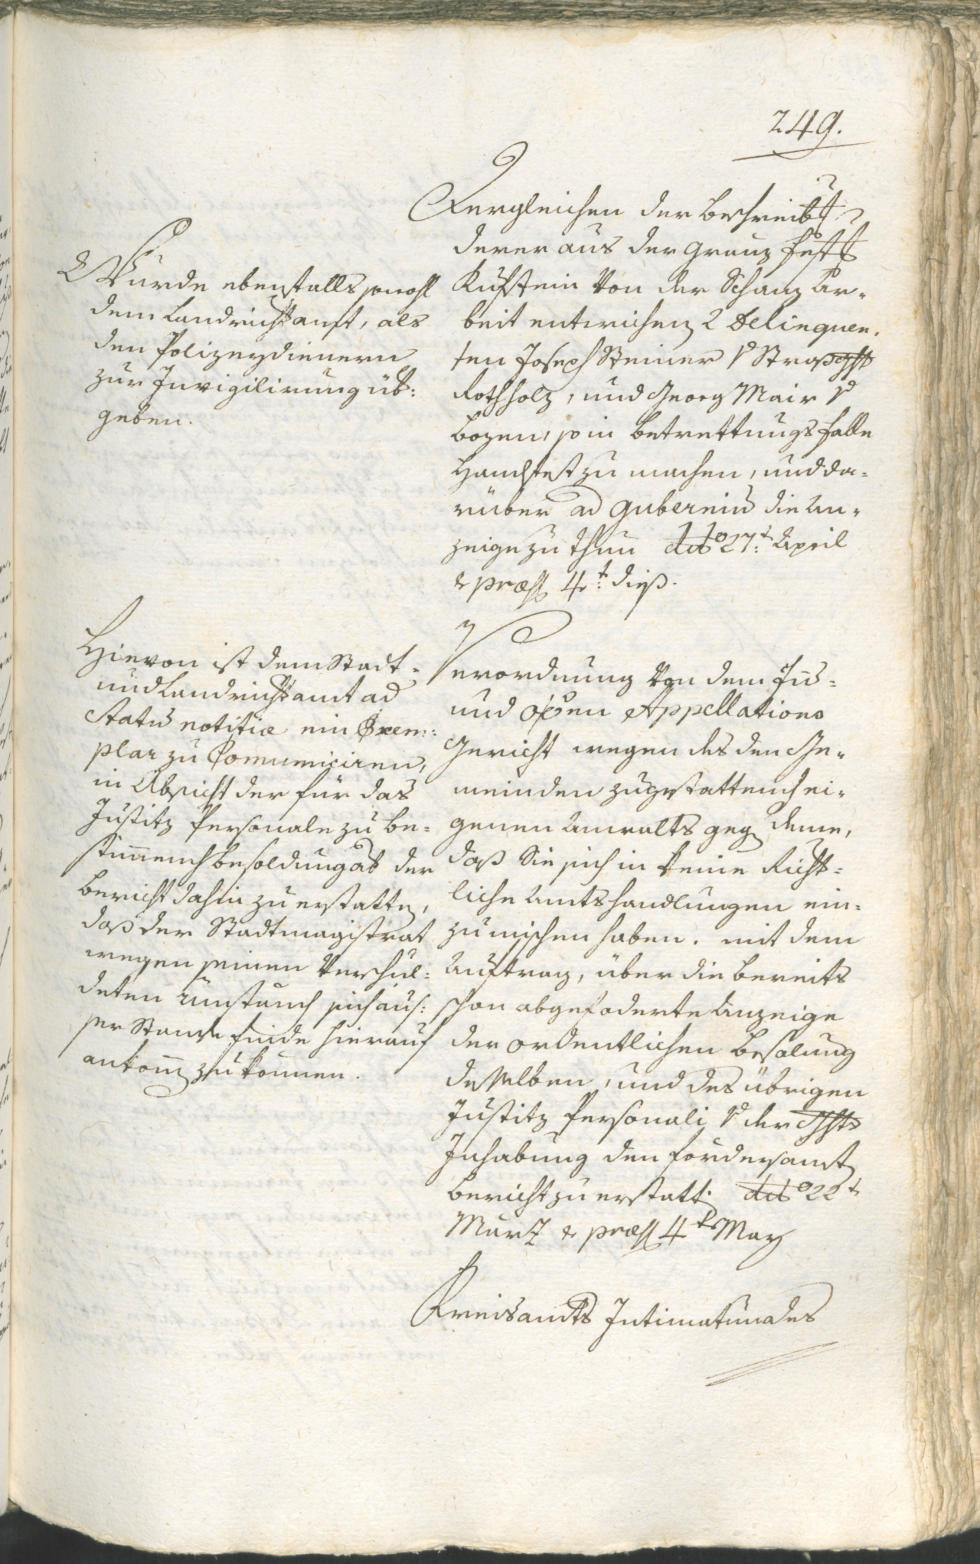 249.
Dergleichen der Beschreibung
derer aus der Granz Festg
Kufstein von der Schanz Ar-
beit entwichen 2 Delinquen.
ten Joseph Steiner
Rothholz, und Georg Mair
Bozen, so in Betrettungs Falle
Handfest zu machen, und da-
rüber ad Gubernium die An-
zeige zu thun ddto 27t April
& præss 4t: dieß.
Wurde ebenfalls sowohl
dem Landrichteramt, als
den Polizeydienern
zur Invigilirung üb:
geben.
Verordnung von dem Inn-
und oö:en Appellations
Gericht wegen des den Ge-
meinden zugestattend ei-
genen Anwalts geg deme,
daß Sie sich in keine Richt-
liche Amtshandlungen ein-
zumischen haben. mit dem
Auftrag, über die bereits
schon abgefoderte Anzeige
der ordentlichen Besolung
deselben, und des übrigen
Justitz Personali der
Inhabung den fördersamst
Bericht zu erstatt: ddto 22t
März & præss 4t May
Hievon ist dem Stadt-
und Landrichteramt ad
Statum notitiæ ein Exem-
plar zu Comuniciren,
in Absicht der für das
Justitz Personale zu be-
stimmend Besoldung ab der
Bericht dahin zu erstatte,
daß der Stadtmagistrat
wegen seinen Verschul-
deten Umstand sich aus-
ser Stande finde hierauf
ankom zu können.
Kreisamts Intimatum des